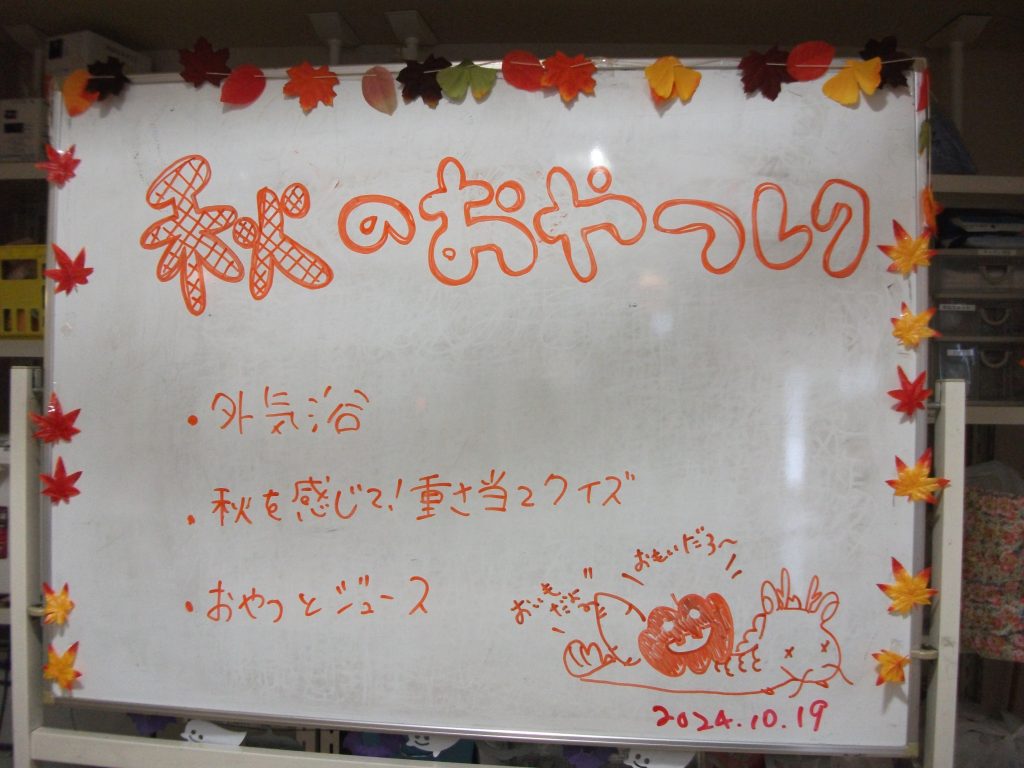 秋のおやつレク
・外気浴
・秋を感じて!重さ当てクイズ
・おやつとジュース
おもいだろ〜
2024.10.19